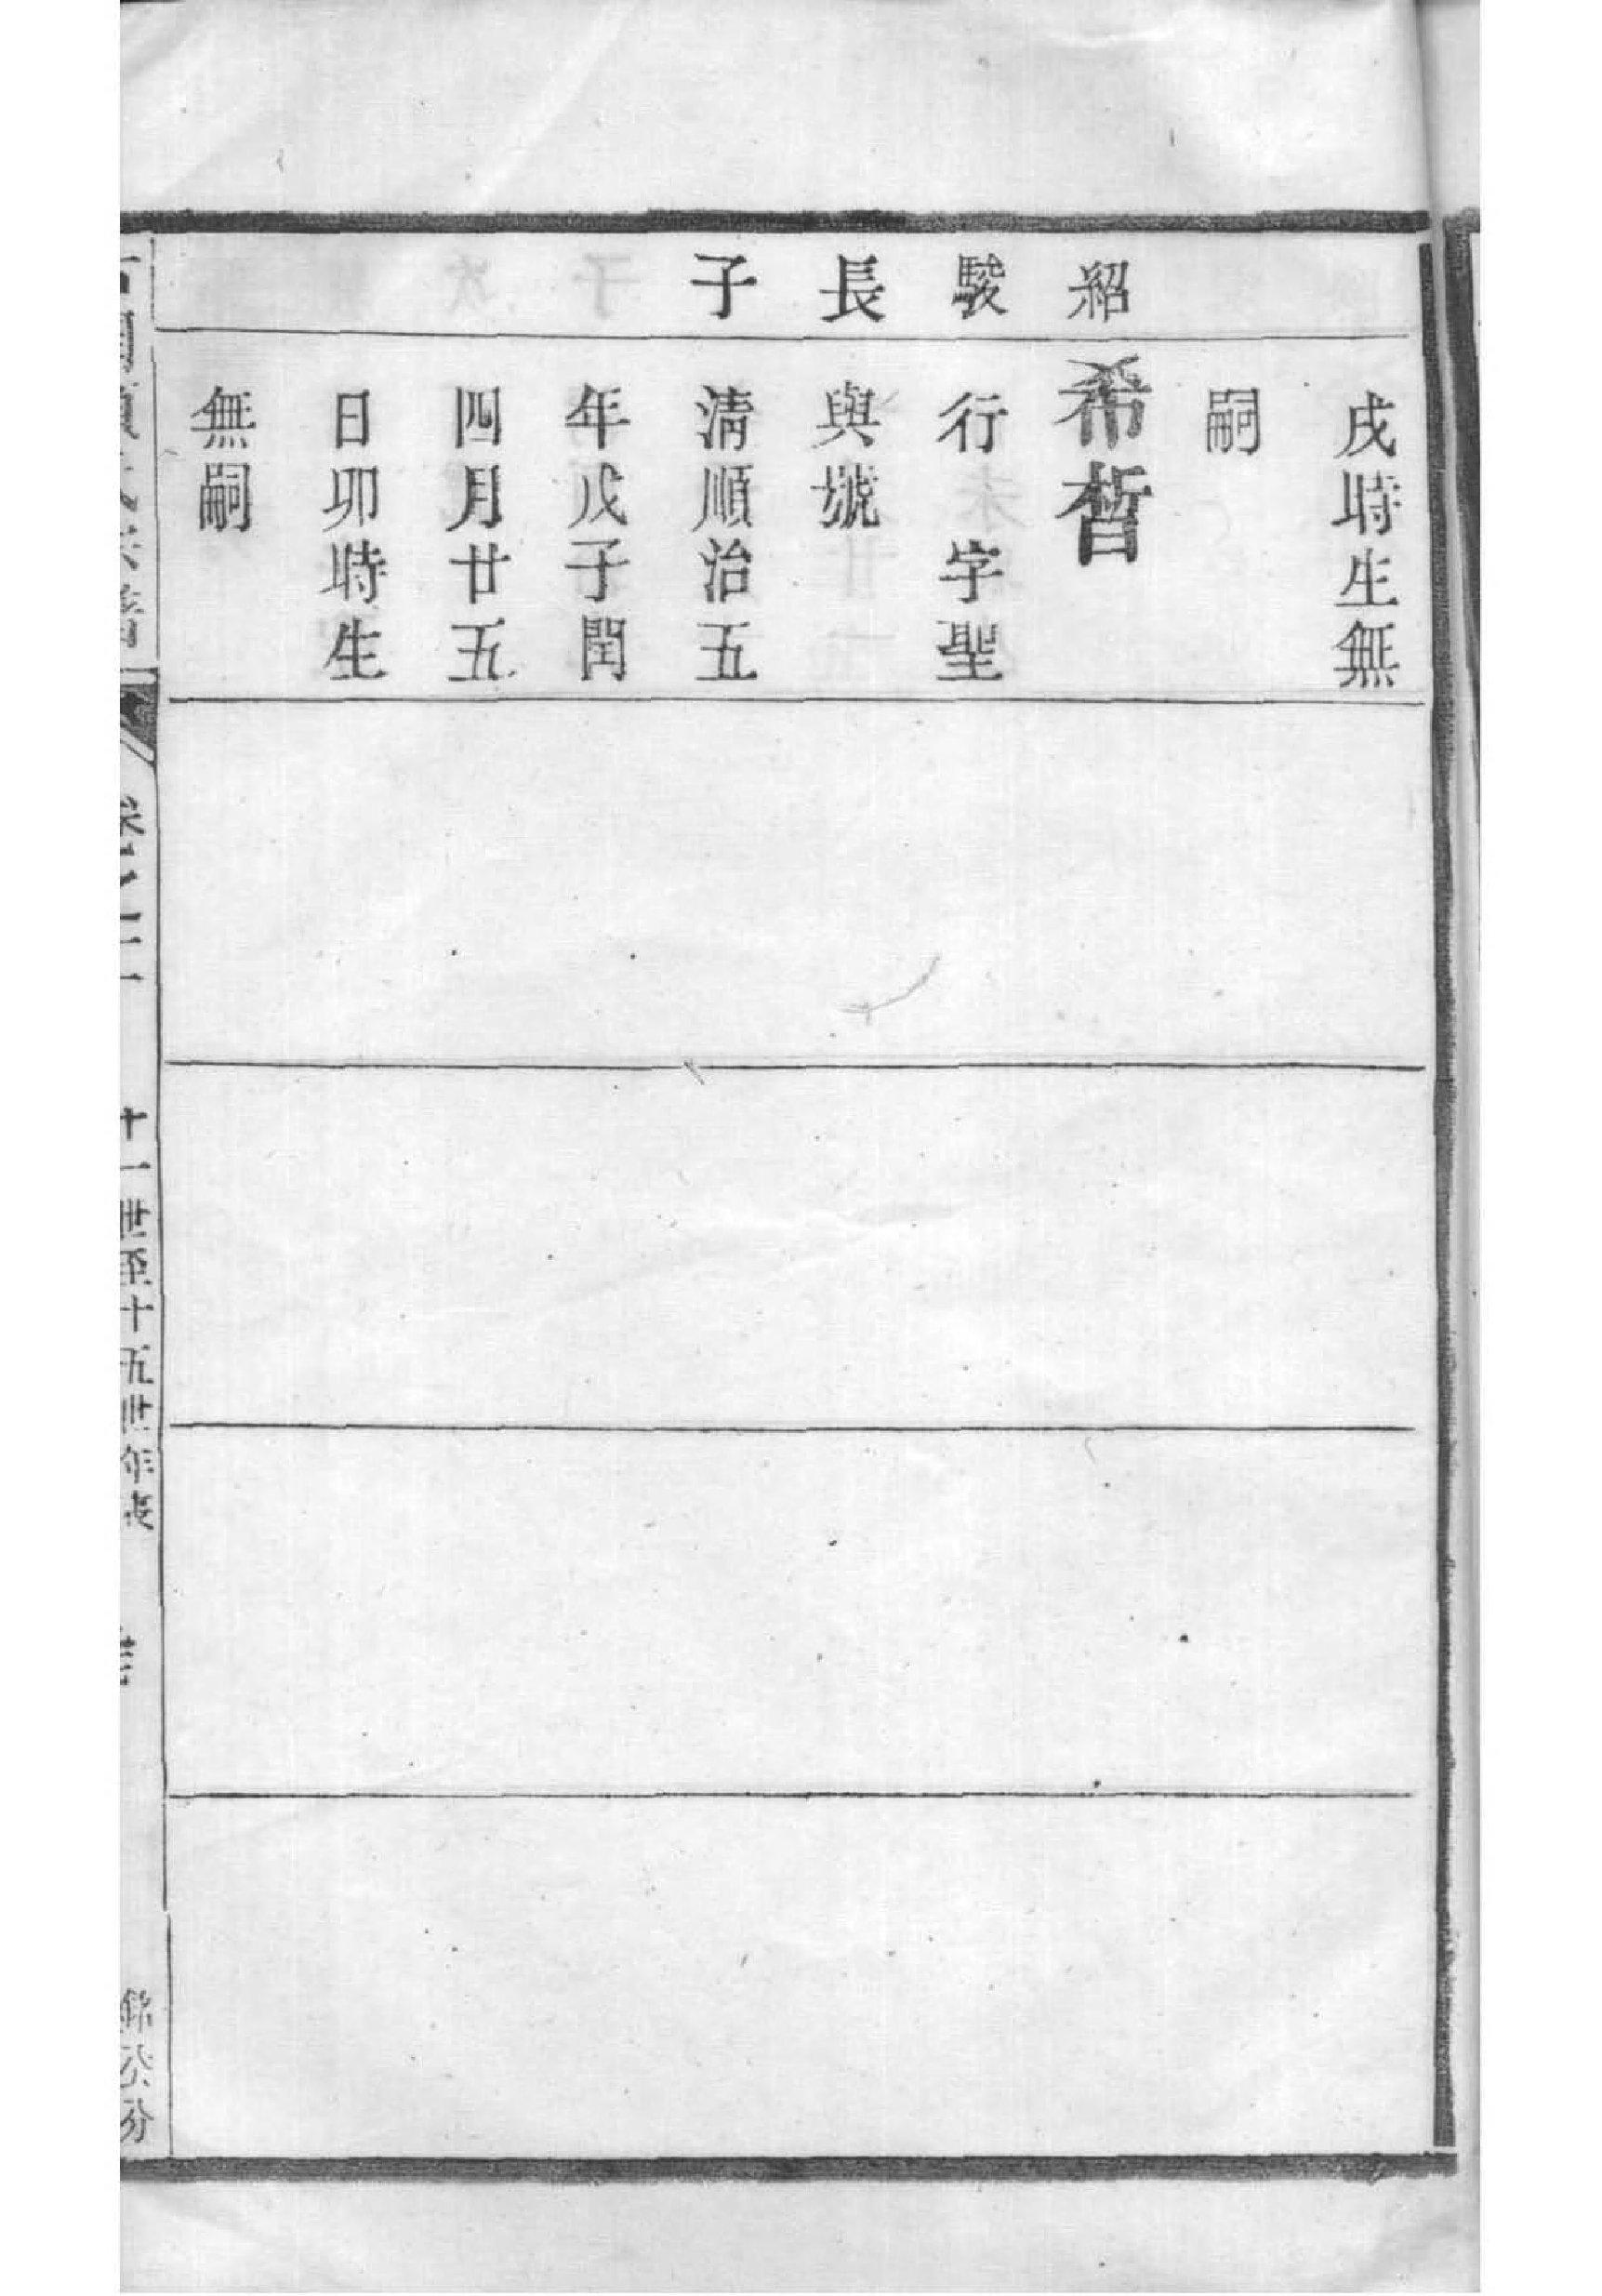 戌時生無
嗣
紹
希晳
駿
行 字聖
長
與號
子
淸順治五
年戊子閏
四月廿五
日卯時生
無嗣
十一世至十五世年表
公分